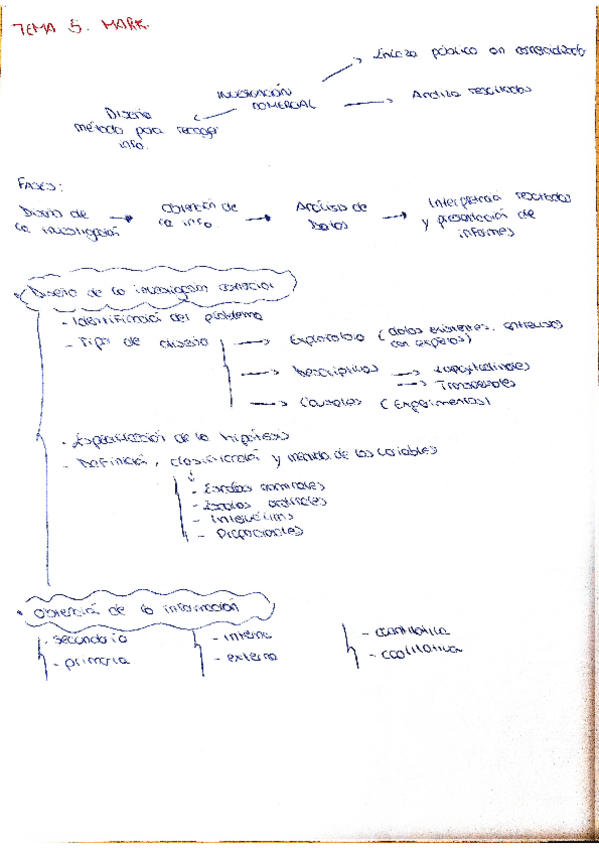 TEMA 5. MARK.
Enlaza público con comercializador
INVESTIGACIÓN COMERCIAL
Analiza resultados
Diseña método para recoger info.
FASES:
Diseño de la investigación → Obtención de la info. → Análisis de Datos → Interpretació resultados y presentación de informes
• Diseño de la investigación comercial
- Identificació del problema
- Tipo de diseño → Exploratorio (datos existentes, entrevistas con expertos)
→ Descriptivos → Longitudinales
→ Transversales
→ Causales (Experimentos)
- Especificación de la hipótesis
- Definició, clasificació y medida de las variables
- Escalas nominales
- Escalas ordinales
- Intervalos
- Proporcionales
• Obtenció de la información
- secundaria
- primaria
- interna
- externa
- cuantitativa
- cualitativa